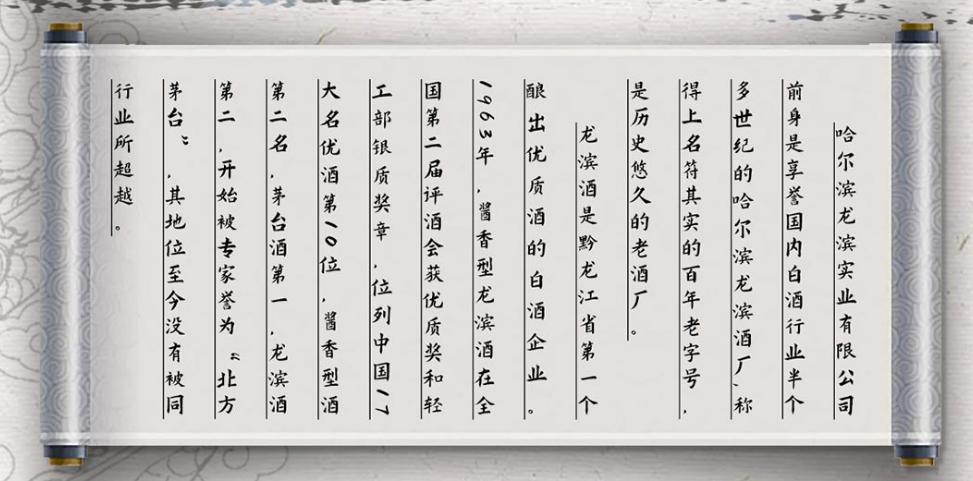 哈尔滨龙滨实业有限公司
前身是享誉国内白酒行业半个
多世纪的哈尔滨龙滨酒厂、称
得上名符其实的百年老字号，
是历史悠久的老酒厂。
龙滨酒是黔龙江省第一个
酿出优质酒的白酒企业。
1963年，酱香型龙滨酒在全
国第二届评酒会获优质奖和轻
工部银质奖章，位列中国17
大名优酒第10位，酱香型酒
第二名，茅台酒第一，龙滨酒
第二，开始被专家誉为“北方
茅台”，其地位至今没有被同
行业所超越。